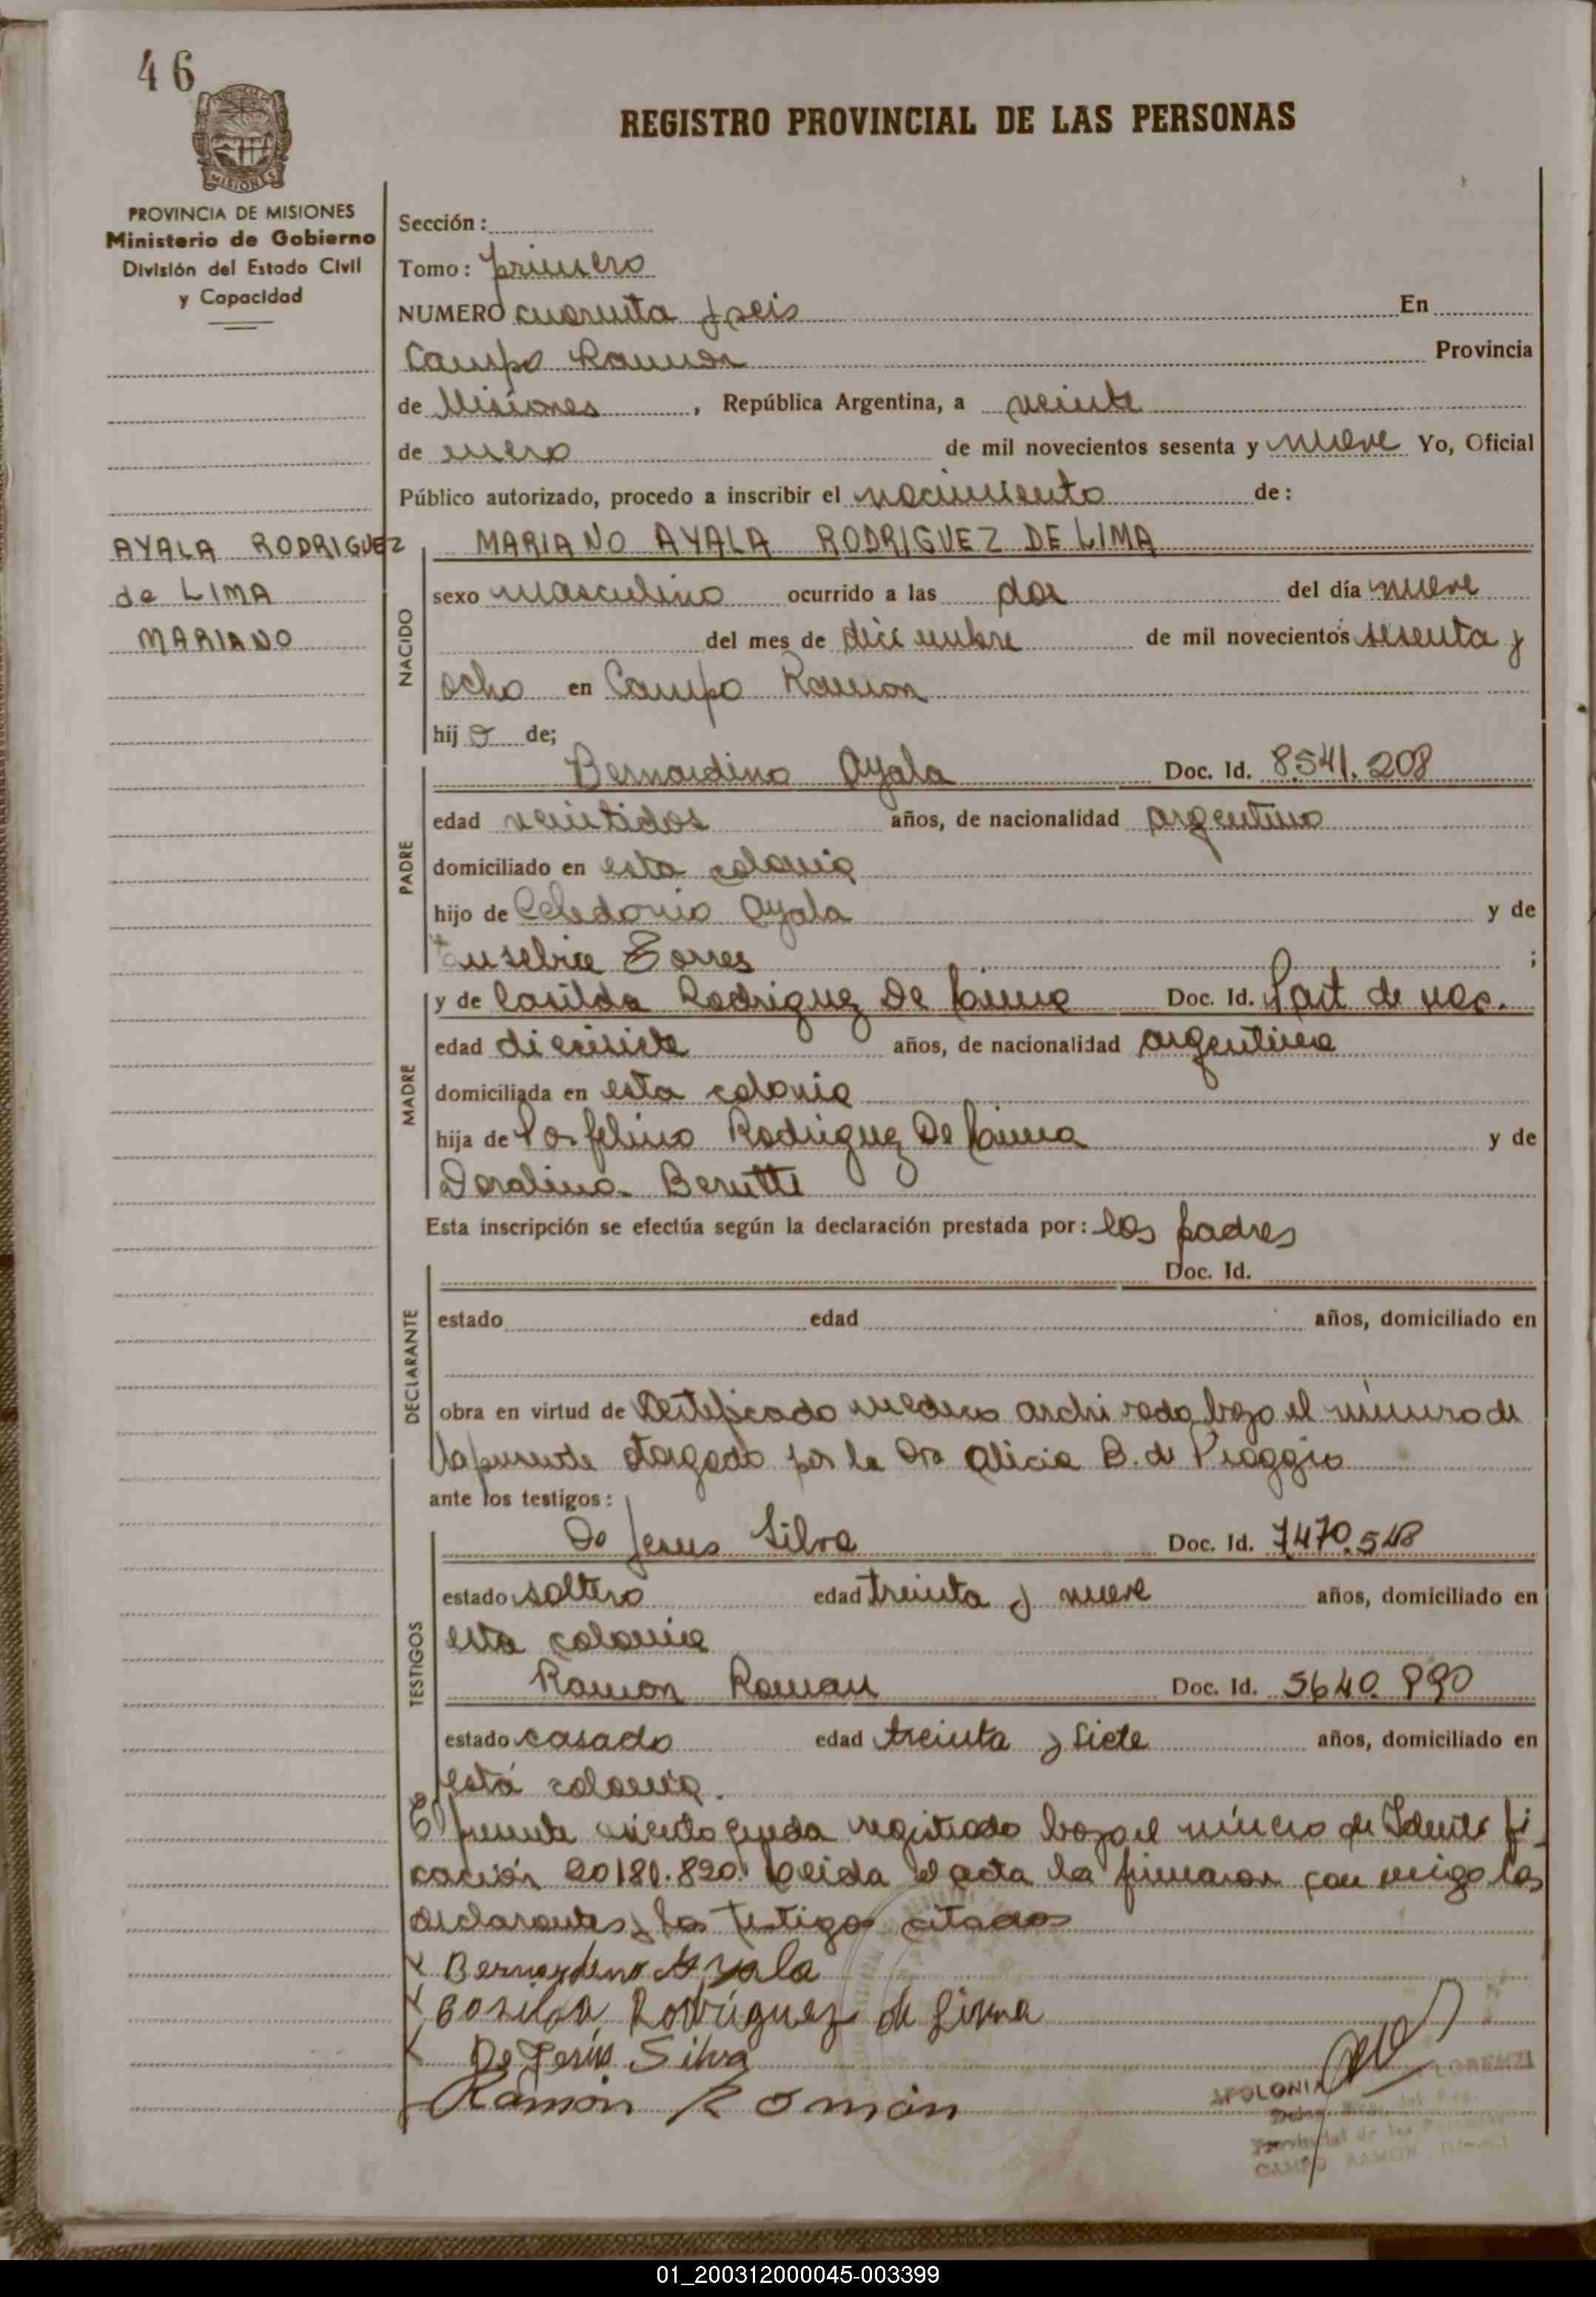 46
REGISTRO PROVINCIAL DE LAS PERSONAS
MISIONES
PROVINCIA DE MISIONES
Ministerio de Gobierno
División del Estado Civil
y Capacidad
AYALA RODRIGUEZ
de LIMA
MARIANO
Sección:
Tomo: primero
NUMERO cuarenta y seis En
Campo Ramon Provincia
de Misiones, República Argentina, a veinte
de enero de mil novecientos sesenta y nueve Yo, Oficial
Público autorizado, procedo a inscribir el nacimiento de:
NACIDO
MARIANO AYALA RODRIGUEZ DE LIMA
sexo masculino ocurrido a las dos del día nueve
del mes de diciembre de mil novecientos sesenta y
ocho en Campo Ramon
hijo de;
PADRE
Bernardino Ayala Doc. Id. 8.541.208
edad veintidos años, de nacionalidad argentino
domiciliado en esta colonia
hijo de Celedonio Ayala y de
Eusebia Torres ;
MADRE
y de Casilda Rodriguez De Lima Doc. Id. Part de nac.
edad diecisiete años, de nacionalidad argentina
domiciliada en esta colonia
hija de Porfelino Rodriguez De Lima y de
Doralina Berutti
Esta inscripción se efectúa según la declaración prestada por: los padres
DECLARANTE
Doc. Id.
estado edad años, domiciliado en
obra en virtud de Certificado medico archivado bajo el número de
la presente otorgado por la Dra Alicia B. de Piaggio
ante los testigos:
TESTIGOS
De Jesus Silva Doc. Id. 7470.548
estado soltero edad treinta y nueve años, domiciliado en
esta colonia
Ramon Roman Doc. Id. 5640.990
estado casado edad treinta y siete años, domiciliado en
está colonia.
El presente asiento queda registrado bajo el número de Identifi
cación 20180.820. Leida el acta la firmaron con migo los
declarantes y los testigos citados
Bernardino Ayala
Casilda Rodríguez de Lima
De Jesús Silva
Ramón Román
APOLONIA LORENZI
Provincial de las
CAMPO RAMON
01_200312000045-003399